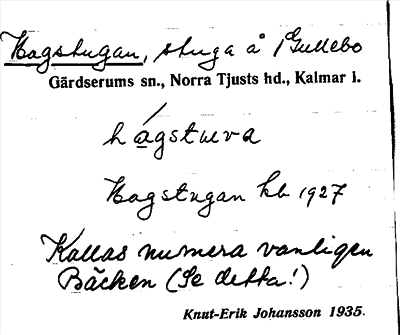 Hagstugan, stuga å Gullebo
Gärdserums sn., Norra Tjusts hd., Kalmar l.
hágstuva
Hagstugan kb 1927
Kallas numera vanligen
Bäcken (Se detta!)
Knut-Erik Johansson 1935.